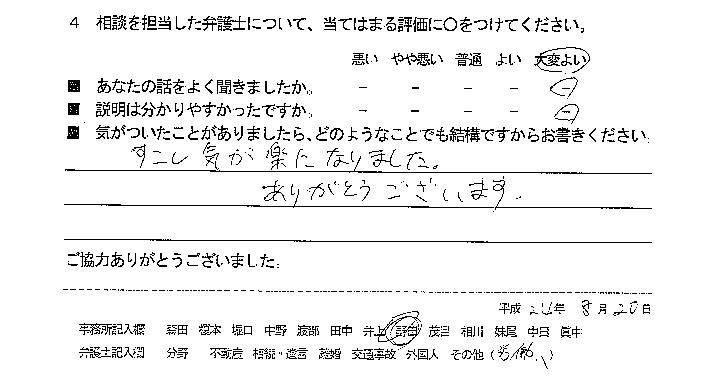 4 相談を担当した弁護士について、当てはまる評価に○をつけてください。
悪い やや悪い 普通 よい 大変よい
あなたの話をよく聞きましたか。 － － － － －
説明は分かりやすかったですか。 － － － － －
気がついたことがありましたら、どのようなことでも結構ですからお書きください。
すこし気が楽になりました。
ありがとうございます。
ご協力ありがとうございました。
平成 24年 8月 20日
事務所記入欄 榎本 堀口 中野 渡部 田中 井上 野田 茂呂 相川 妹尾 中日 眞中
弁護士記入欄 分野 不動産 相続・遺言 離婚 交通事故 外国人 その他（労働）